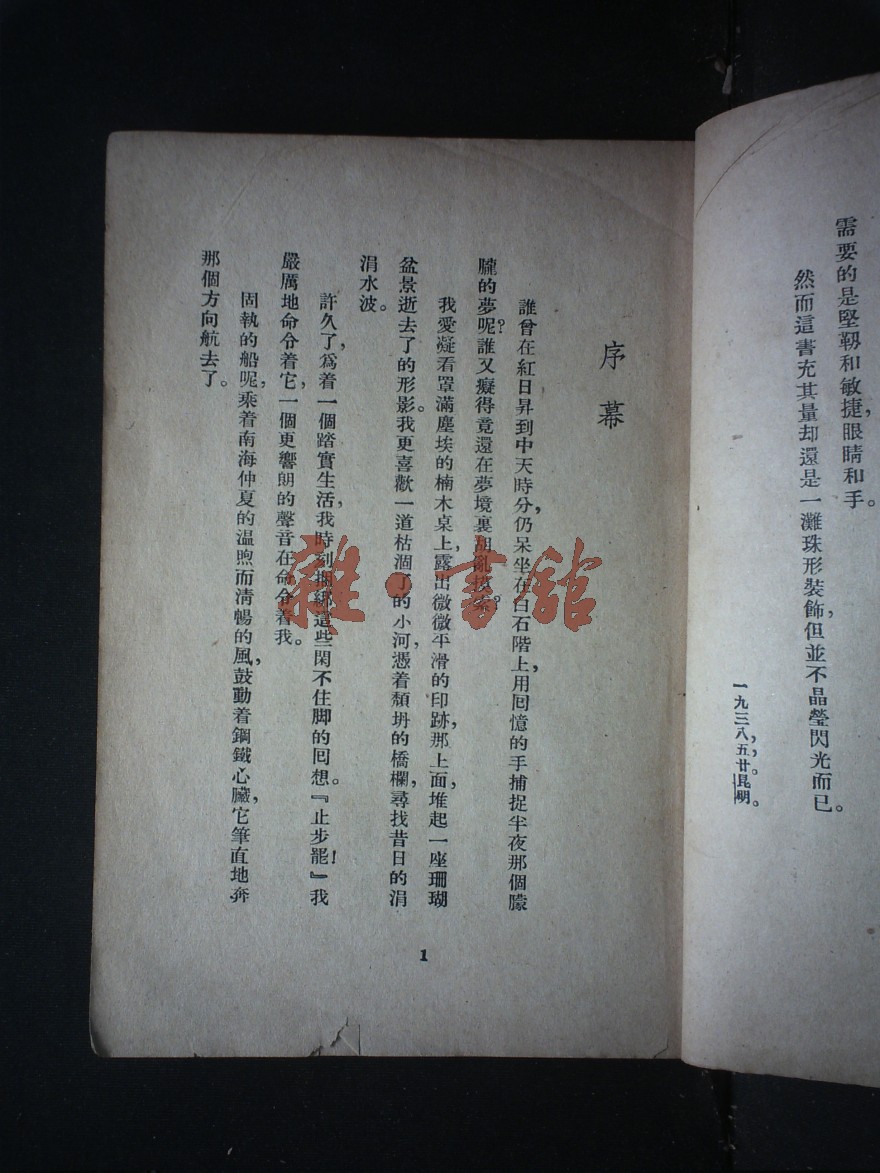 需要的是堅靱和敏捷，眼睛和手。
然而這書充其量却還是一灘珠形裝飾，但並不晶瑩閃光而已。
一九三八，五，廿。昆明。
序幕
誰曾在紅日昇到中天時分，仍呆坐在白石階上，用囘憶的手捕捉半夜那個朦
朧的夢呢？誰又癡得竟還在夢境裏胡亂摸索？
我愛凝看罩滿塵埃的楠木桌上，露出微微平滑的印跡，那上面，堆起一座珊瑚
盆景逝去了的形影。我更喜歡一道枯涸了的小河，憑着頹坍的橋欄，尋找昔日的涓
涓水波。
許久了，爲着一個踏實生活，我時刻捆綁這些閑不住脚的囘想。『止步罷！』我
嚴厲地命令着它，一個更響朗的聲音在命令着我。
固執的船呢，乘着南海仲夏的溫煦而淸暢的風，鼓動着鋼鐵心臟，它筆直地奔
那個方向航去了。
1
雜·書館